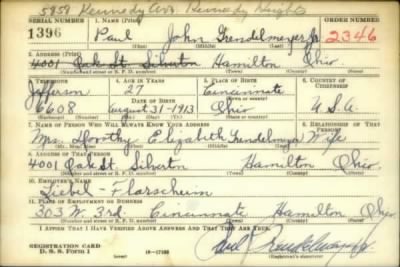 5959 Kennedy Ave. Kennedy Heights
SERIAL NUMBER 1. NAME (Print) ORDER NUMBER
1396 Paul John Grendelmeyer Jr. 2346
(First) (Middle) (Last)
2. ADDRESS (Print)
4001 Oak St. Silverton Hamilton Ohio
(Number and street or R. F. D. number) (Town) (County) (State)
3. TELEPHONE 4. AGE IN YEARS 5. PLACE OF BIRTH 6. COUNTRY OF CITIZENSHIP
Jefferson 27 Cincinnati
6608 DATE OF BIRTH Ohio U.S.A.
August 31-1913
(Town or county)
7. NAME OF PERSON WHO WILL ALWAYS KNOW YOUR ADDRESS 8. RELATIONSHIP OF THAT PERSON
Mrs. Dorothy Elizabeth Grendelmeyer Wife
9. ADDRESS OF THAT PERSON
4001 Oak St. Silverton Hamilton Ohio
(Number and street or R. F. D. number) (Town) (County) (State)
10. EMPLOYER'S NAME
Liebel-Flarsheim
11. PLACE OF EMPLOYMENT OR BUSINESS
303 W. 3rd. Cincinnati Hamilton Ohio
(Number and street or R. F. D. number) (Town) (County) (State)
I AFFIRM THAT I HAVE VERIFIED ABOVE ANSWERS AND THAT THEY ARE TRUE.
REGISTRATION CARD
D. S. S. Form 1
Paul Grendelmeyer Jr.